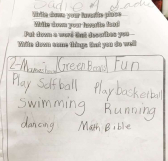 Write down your favorite place
Write down your favorite food
Put down a word that describes you
Write down some things that you do well
Green Fun
Play Softball
Play basketball
swimming
Running
dancing
Math Bible